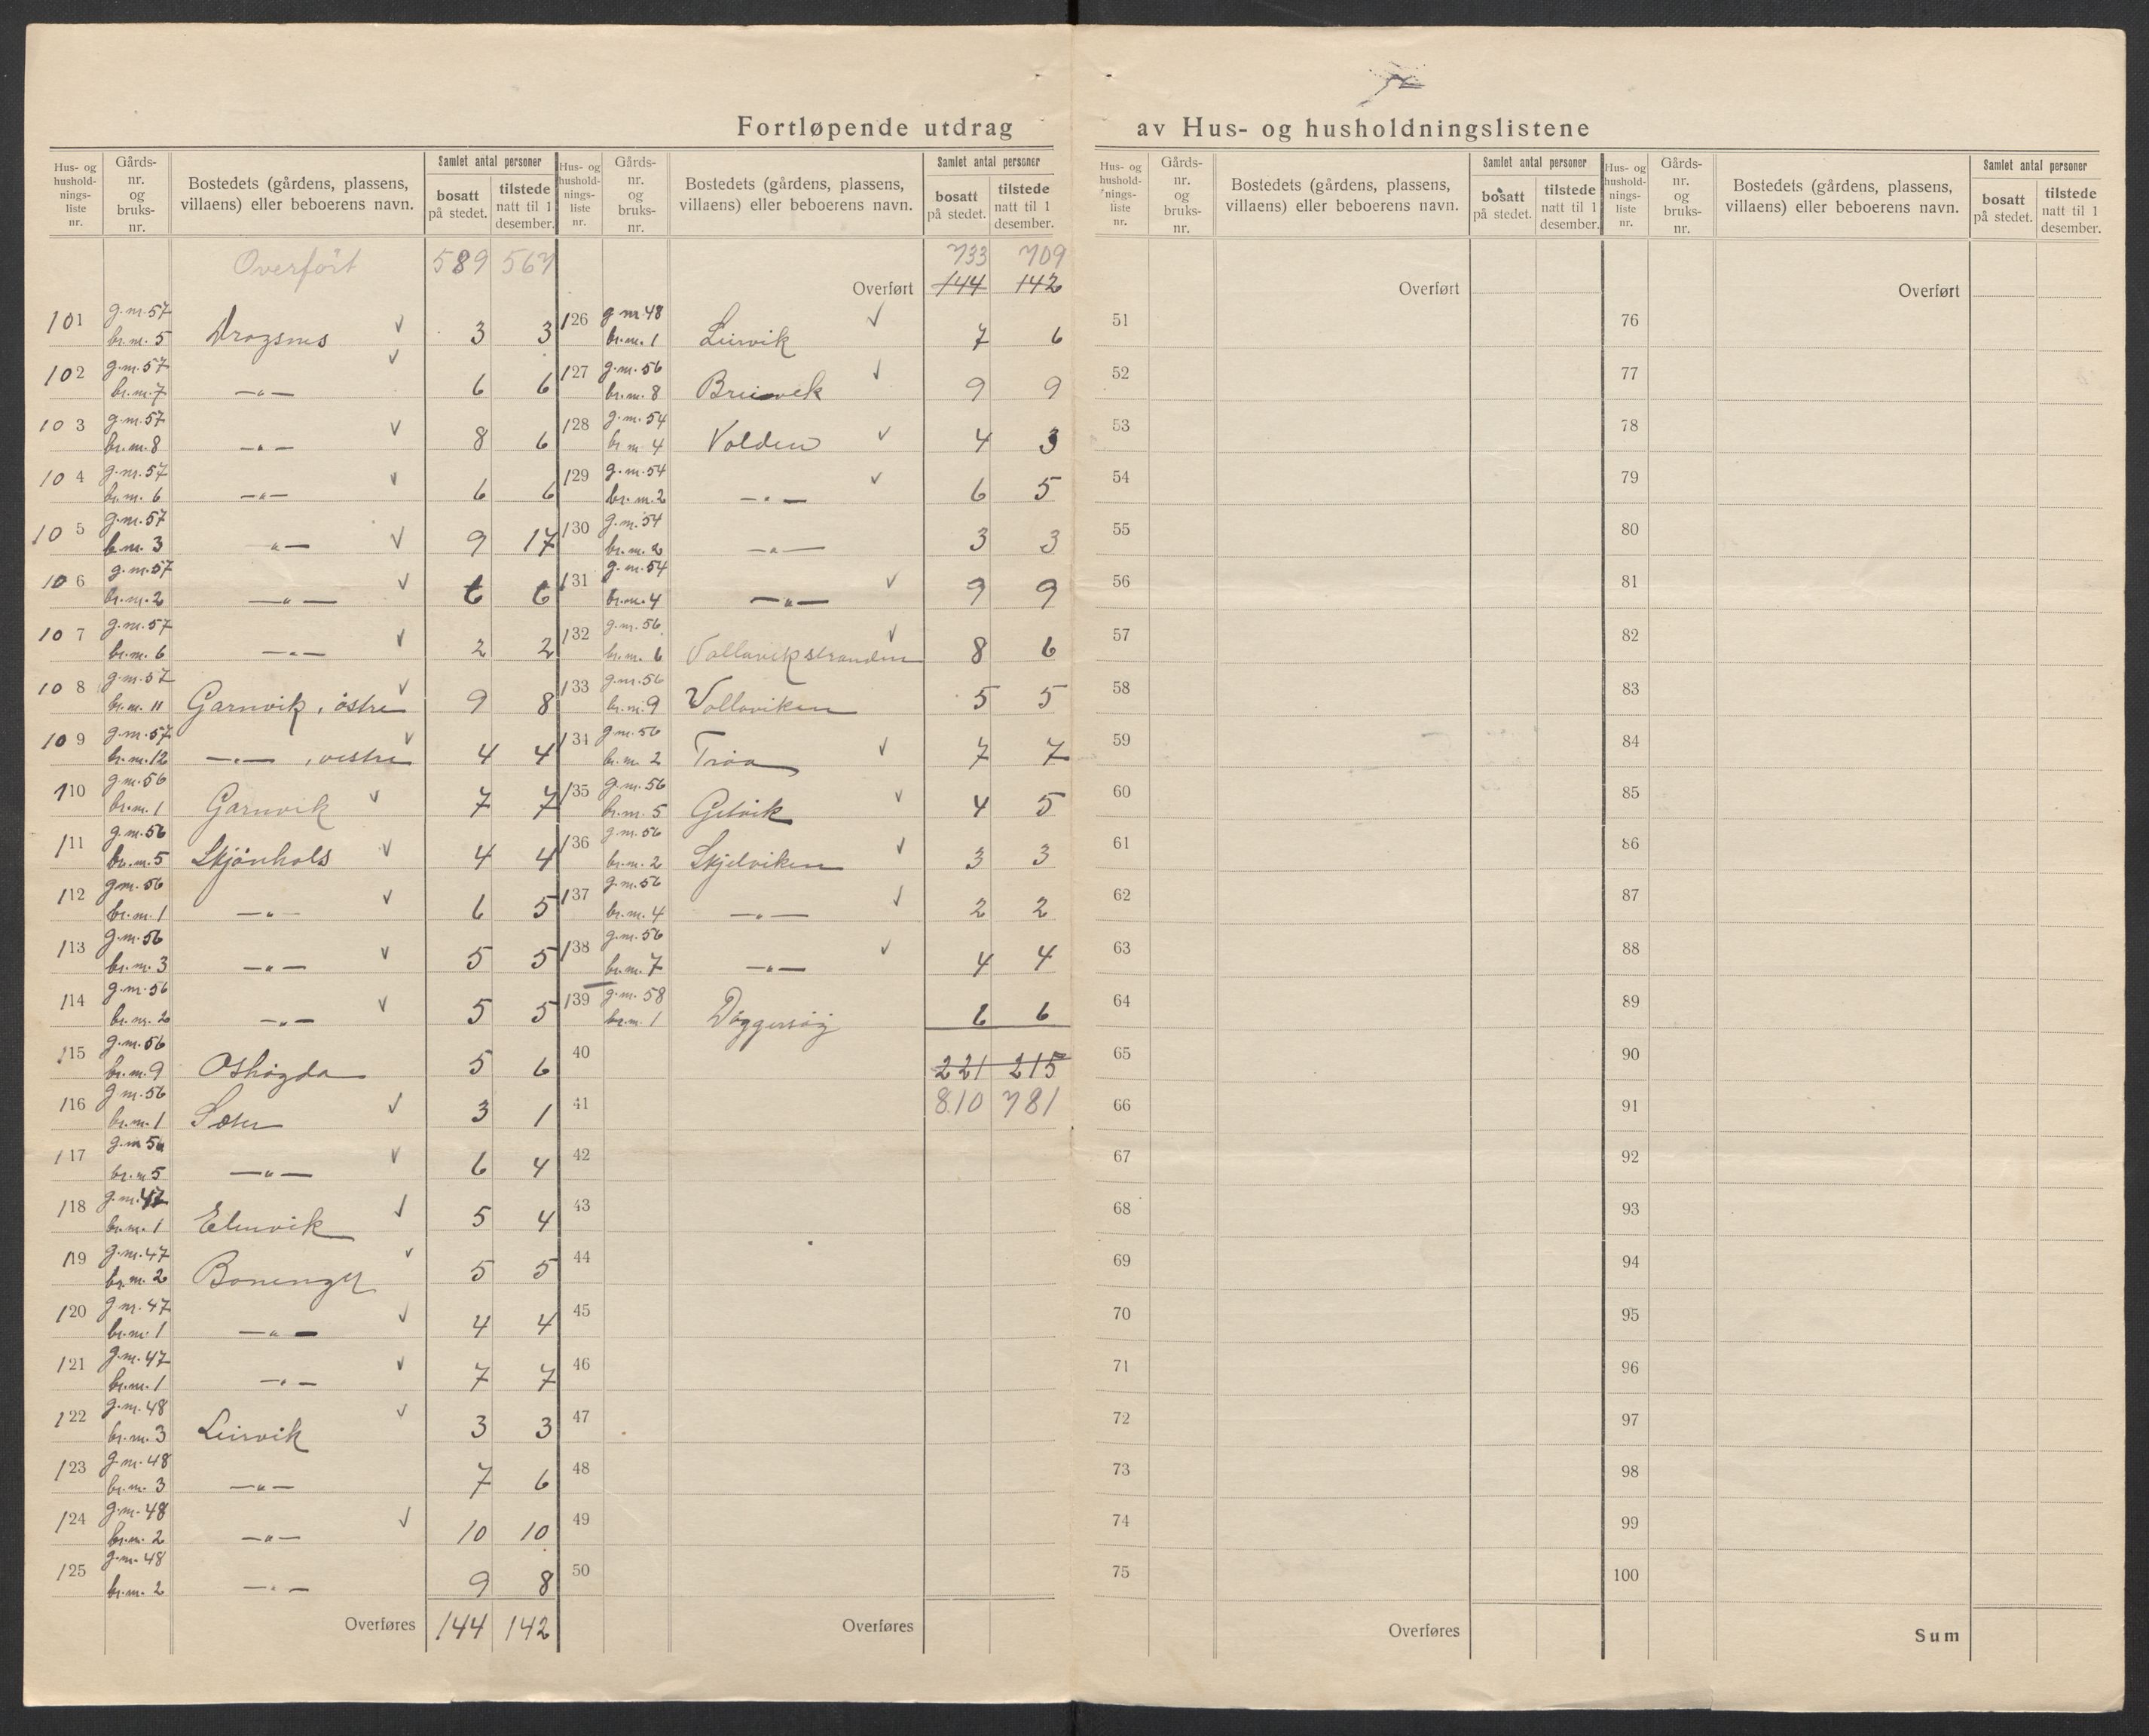 Fortløpende utdrag av Hus- og husholdningslistene
Hus- og hushold- nings- liste nr. | Gårds- nr. og bruks- nr. | Bostedets (gårdens, plassens, villaens) eller beboerens navn. | Samlet antal personer | bosatt på stedet. | tilstede natt til 1 desember.
Overført 589 567
101 g.nr. 57 br.nr. 5 3 3
102 g.nr. 57 br.nr. 7 —„— 6 6
103 g.nr. 57 br.nr. 8 —„— 8 6
104 g.nr. 57 br.nr. 6 —„— 6 6
105 g.nr. 57 br.nr. 3 —„— 9 17
106 g.nr. 57 br.nr. 2 —„— 6 6
107 g.nr. 57 br.nr. 6 —„— 2 2
108 g.nr. 57 br.nr. 11 Garnvik, östre 9 8
109 g.nr. 57 br.nr. 12 —„— , vestre 4 4
110 g.nr. 56 br.nr. 1 Garnvik 7 7
111 g.nr. 56 br.nr. 5 Skjönhals 4 4
112 g.nr. 56 br.nr. 1 —„— 6 5
113 g.nr. 56 br.nr. 3 —„— 5 5
114 g.nr. 56 br.nr. 2 —„— 5 5
115 g.nr. 56 br.nr. 9 Oshögda 5 6
116 g.nr. 56 br.nr. 1 3 1
117 g.nr. br.nr. 5 —„— 6 4
118 g.nr. 47 br.nr. 1 Elmvik 5 4
119 g.nr. 47 br.nr. 2 5 5
120 g.nr. 47 br.nr. 1 —„— 4 4
121 g.nr. 47 br.nr. 1 —„— 7 7
122 g.nr. 48 br.nr. 3 Leirvik 3 3
123 g.nr. 48 br.nr. 3 —„— 7 6
124 g.nr. 48 br.nr. 2 —„— 10 10
125 g.nr. 48 br.nr. 2 —„— 9 8
Overføres 144 142
Hus- og hushold- nings- liste nr. | Gårds- nr. og bruks- nr. | Bostedets (gårdens, plassens, villaens) eller beboerens navn. | Samlet antal personer | bosatt på stedet. | tilstede natt til 1 desember.
733 709
Overført 144 142
126 g.nr. 48 br.nr. 1 Leirvik 7 6
127 g.nr. 56 br.nr. 8 Breivik 9 9
128 g.nr. 54 br.nr. 4 Volden 4 3
129 g.nr. 54 br.nr. 2 —„— 6 5
130 g.nr. 54 br.nr. 2 —„— 3 3
131 g.nr. 54 br.nr. 4 —„— 9 9
132 g.nr. 56 br.nr. 6 Vallavikstranden 8 6
133 g.nr. 56 br.nr. 9 Vollaviken 5 5
134 g.nr. 56 br.nr. 2 Tröa 7 7
135 g.nr. 56 br.nr. 5 Getvik 4 5
136 g.nr. 56 br.nr. 2 Skjelviken 3 3
137 g.nr. 56 br.nr. 4 —„— 2 2
138 g.nr. 56 br.nr. 7 —„— 4 4
139 g.nr. 58 br.nr. 1 6 6
40 221 215
41 810 781
42
43
44
45
46
47
48
49
50
Overføres
Hus- og hushold- nings- liste nr. | Gårds- nr. og bruks- nr. | Bostedets (gårdens, plassens, villaens) eller beboerens navn. | Samlet antal personer | bosatt på stedet. | tilstede natt til 1 desember.
Overført
51
52
53
54
55
56
57
58
59
60
61
62
63
64
65
66
67
68
69
70
71
72
73
74
75
Overføres
Hus- og hushold- nings- liste nr. | Gårds- nr. og bruks- nr. | Bostedets (gårdens, plassens, villaens) eller beboerens navn. | Samlet antal personer | bosatt på stedet. | tilstede natt til 1 desember.
Overført
76
77
78
79
80
81
82
83
84
85
86
87
88
89
90
91
92
93
94
95
96
97
98
99
100
Sum